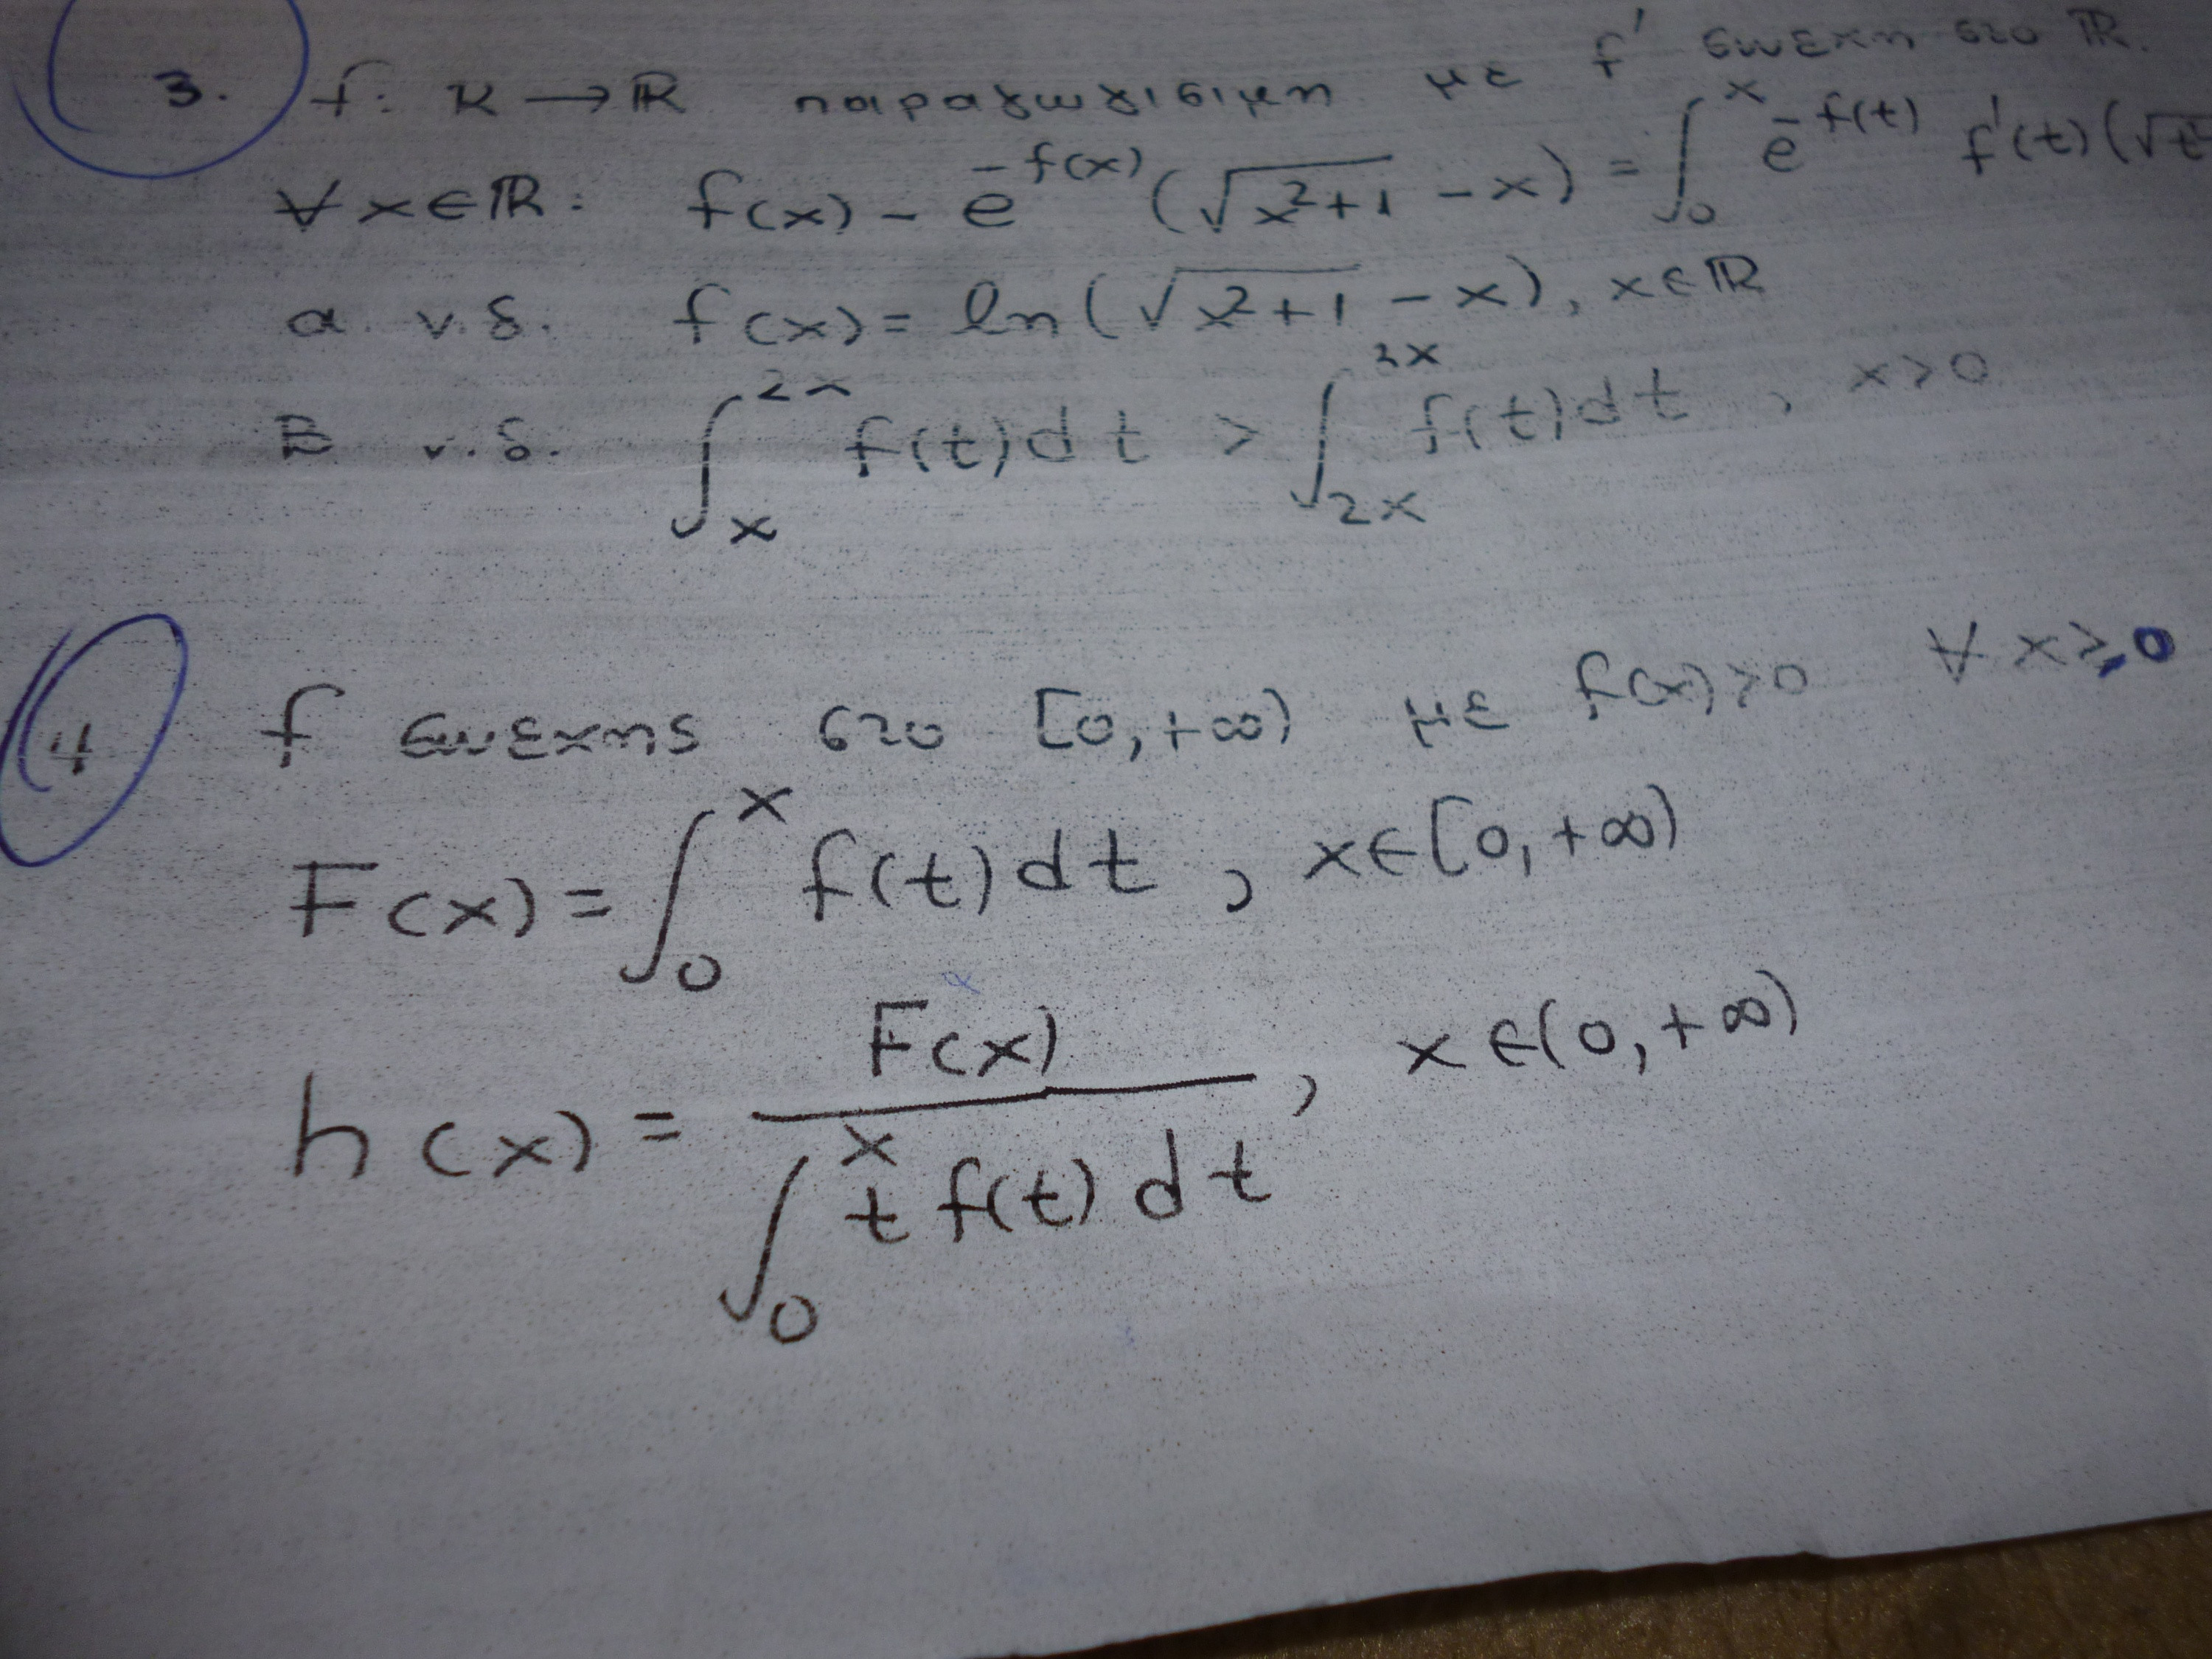 3. f: ℝ → ℝ παραγωγίσιμη με f' συνεχή στο ℝ.
∀ x∈ℝ: f(x) - e^{-f(x)} (√(x²+1) - x) = ∫₀ˣ e^{-f(t)} f'(t) (√t
α. ν.δ. f(x) = ln(√(x²+1) - x), x∈ℝ
Β ν.δ. ∫ₓ²ˣ f(t)dt > ∫₂ₓ³ˣ f(t)dt, x>0
4 f συνεχης στο [0,+∞) με f(x)>0 ∀ x≥0
F(x) = ∫₀ˣ f(t)dt, x∈[0,+∞)
h(x) = F(x) / ∫₀ˣ t f(t) dt, x∈(0,+∞)